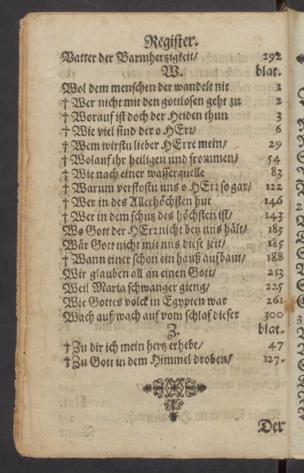 Register.
Vatter der Barmhertzigkeit/ 292
W. blat.
Wol dem menschen der wandelt nit 1
† Wer nicht mit den gottlosen geht zu 2
† Worauf ist doch der Heiden thun 3
† Wie viel sind der o HErr/ 6
† Wem wirstu lieber HErre mein/ 29
† Wolauf ihr heiligen und frommen/ 54
† Wie nach einer wasserquelle 83
† Warum verstostu uns o HErr so gar/ 122
† Wer in des Allerhöchsten hut 146
† Wer in dem schutz des höchsten ist/ 143
Wo Gott der HErr nicht bey uns hält/ 183
Wär Gott nicht mit uns diese zeit/ 185
† Wann einer schon ein hauß aufbaut/ 188
Wir glauben all an einen Gott/ 213
Weil Maria schwanger gieng/ 225
Wie Gottes volck in Egypten war 261
Wach auf/ wach auf vom schlaf dieser 300
Z. blat.
† Zu dir ich mein hertz erhebe/ 47
† Zu Gott in dem Himmel droben/ 127.
Der